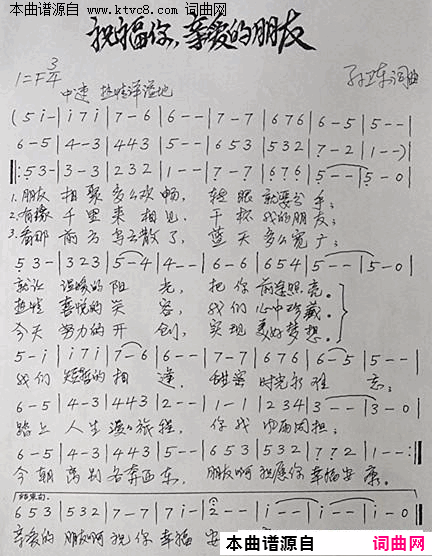 本曲谱源自 词曲网
www.ktvc8.com
祝福你,亲爱的朋友
1=F 3/4
中速 热情洋溢地
孙 词曲
(5 i - | i 7 i | 7 - 6 | 6 - - | 7 - 7 | 6 7 6 | 6 - 5 | 5 - - |
6 - 5 | 4 - 3 | 4 4 3 | 5 - - | 6 5 3 | 5 3 2 | 7 - 2 | 1 - - )|
‖: 5 3 - | 3 - 3 | 2 3 2 | 1 - - | 7 - 7 | 6 7 6 | 5 - - | 5 - 0 |
1. 朋友 相聚多么欢畅, 轻 眼就要分手;
2. 有缘 千里来相见, 干杯我的朋友;
3. 看那 前方乌云散了, 蓝天多么宽广;
5 3 - | 3 2 3 | 5 - 4 | 4 - - | 6 - 6 | 6 5 4 | 5 - - | 5 - 0 |
就让 温暖的阳 光, 把你前途照亮。
热情 喜悦的笑 容, 我们心中珍藏。
今天 努力的开 创, 实现美好梦想。
5 - i | i 7 i | 7 - 6 | 6 - - | 7 - 7 | 6 7 6 | 6 - 5 | 5 - - |
我们 短暂的相 逢, 甜蜜时光永难 忘;
6 - 5 | 4 - 3 | 4 4 3 | 2 - - | 1 - 1 | 2 3 4 | 3 - - | 3 - 0 |
踏上 人生漫漫旅程, 你我 同担;
6 - 5 | 4 - 3 | 4 4 3 | 5 - - | 6 5 3 | 5 3 2 | 7 7 2 | 1 - - :‖
今朝 离别各奔西东, 朋友啊祝愿你幸福安康。
结束句
6 5 3 | 5 3 2 | 7 - 7 | 7 i - | 2 - - | i - - | i - - | i - 0 ‖
亲爱的 朋友啊祝你幸福 安
本曲谱源自 词曲网